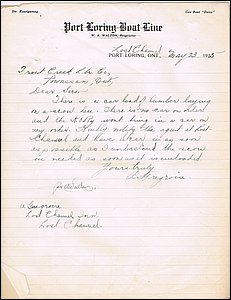 Str. Kawigamog
Gas Boat "Daisy"
Port Loring Boat Line
W. A. WALTON, Proprietor
Lost Channel
PORT LORING, ONT. May 23 1923
Trout Creek Lbr Co,
Ont
Dear Sirs:-
There is a car load of lumber laying
on a scow here. There is no car on order
and the Rlby wont bring in a car on
my order. Kindly notify the agent at Lost
Channel and have a car in as soon
as possible as I understand the scow
is needed as soon as it is unloaded.
Yours truly
A Gregoire
A Gregoire
Lost Channel
Lost Channel